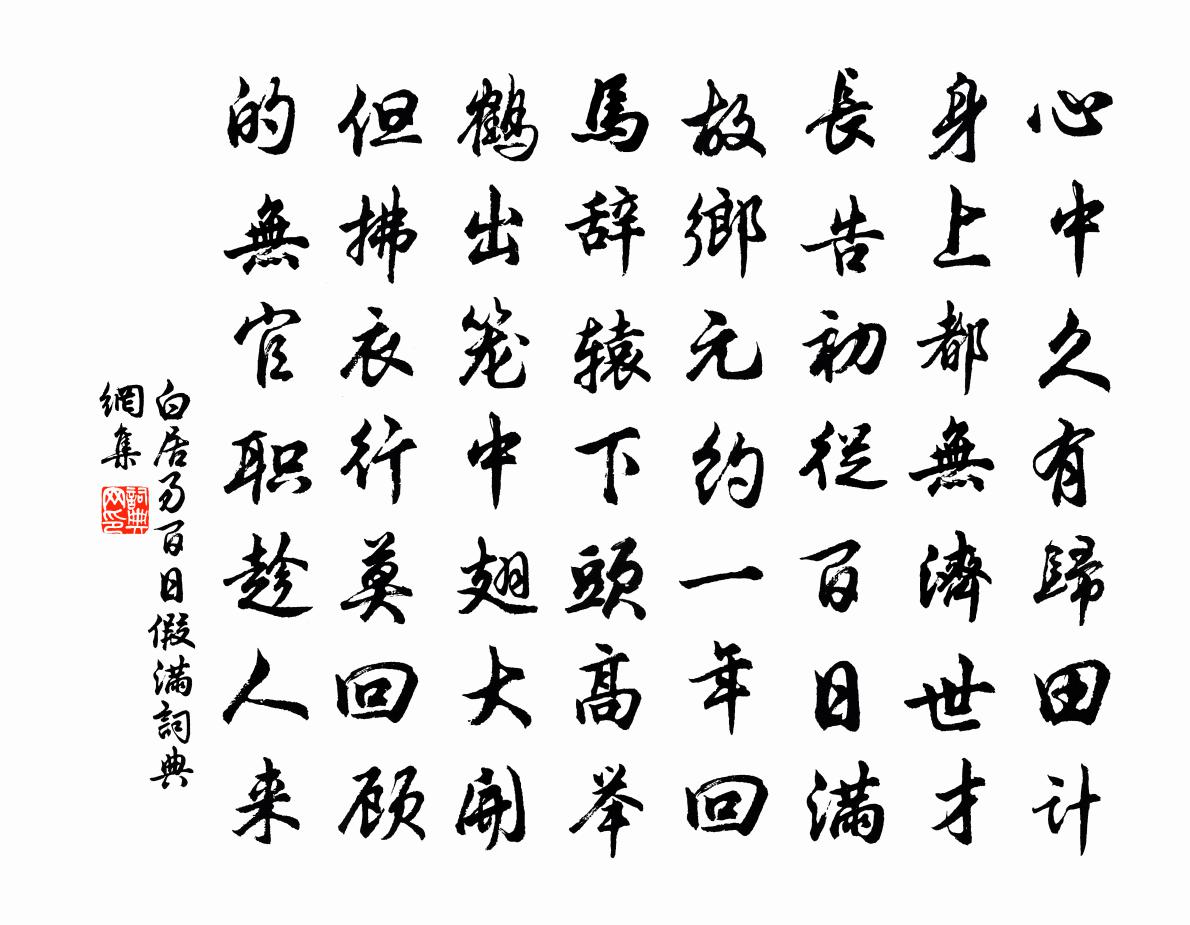 心中久有歸田计
身上都無濟世才
長告初従百日满
故鄉元约一年回
馬辞辕下頭高举
鶴出笼中翅大開
但拂衣行莫回顾
的無官职趁人来
白居易百日假满詞典
網集
詞典
网印